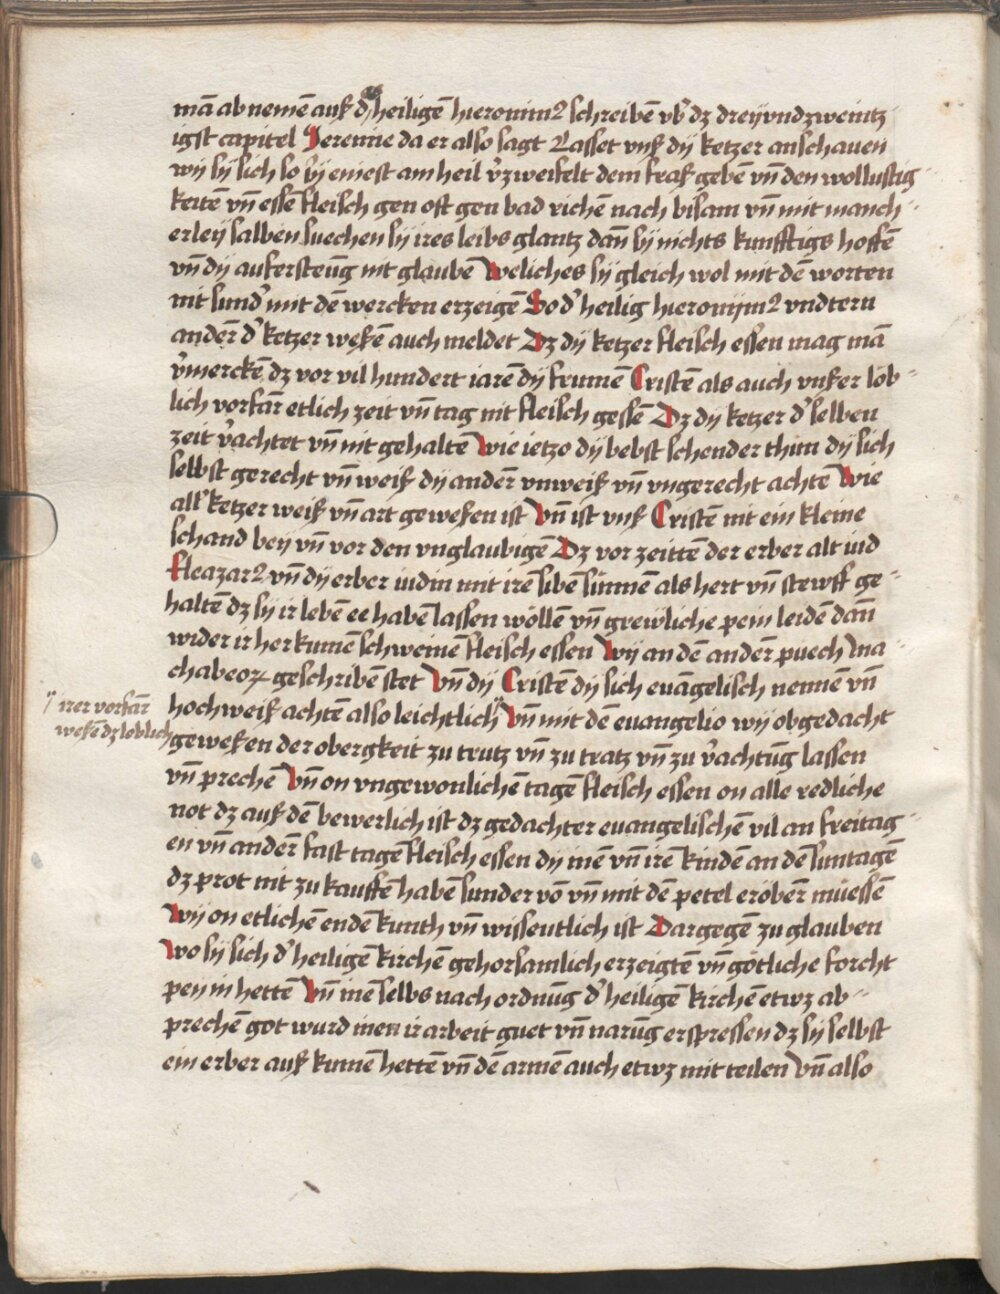 mā ab nemē auß dʼ heiligē hieronimꝰ schreibē vbʼ dz dreyvndzweintz
igst capitel Jeremie da er also sagt Lasset vnß dij ketzer anschauen
wij sij sich so sij eniest am heil vʼzweifelt dem fraß gebē vn̄ den wollustig
keitē vn̄ essē fleisch gen oft gen bad richē nach bisam vn̄ mit manch-
erleij salben suechen sij ires leibs glantz dan̄ sij nichts kunfftigs hoffē
vn̄ dij auferstēug nit glaubē Weliches sij gleich wol mit dē worten
nit sundʼ mit dē wercken erzeigē So dʼ heilig hieronijmꝰ vndtern
anderē dʼ ketzer wesē auch meldet Dz dij ketzer fleisch essen mag mā
vʼmerckē dz vor vil hundert iarē dij frumē Cristē als auch vnser löb-
lich vorfar̄ etlich zeit vn̄ tag nit fleisch gessē Dz dij ketzer dʼ selben
zeit vʼachtet vn̄ nit gehaltē Wie ietzo dij bebst schender thun dij sich
selbst gerecht vn̄ weiß dij ander̄ vnweiß vn̄ vngerecht achtē Wie
allʼ ketzer weiß vn̄ art gewesen ist Vn̄ ist vnß Cristē nit ein kleine
schand beij vn̄ vor den vnglaubigē Dz vor zeittē der erber alt iud
Eleazarꝰ vn̄ dij erber iudin mit irē sibē sunnē als hert vn̄ stewff ge-
haltē dz sij ir lebē ee habē lassen wöllē vn̄ grewliche pein leidē dan̄
wider ir herkumē schweinē fleisch essen Wij an dē anderē puech Ma-
chabeoꝝ geschribē stet Vn̄ dij Cristē dij sich euāgelisch nennē vn̄
hochweiß achtē also leichtlich" Vn̄ mit dē euangelio wij obgedacht
" irer vorfar̄
wesē dz loblich
gewesen der obergkeit zu trutz vn̄ zu tratz vn̄ zu vʼachtūg lassen
vn̄ prechē Vn̄ on vngewonlichē tagē fleisch essen on alle redliche
not dz auß dē bewerlich ist dz gedachter euangelischē vil an freitag-
en vn̄ anderē fast tagē fleisch essen dij inē vn̄ irē kindē an dē suntagē
dz prot nit zu kauffē habē sunder vō vn̄ mit dē petel erober̄ müessē
Wij on etlichē enden kunth vn̄ wissentlich ist Dargegē zu glauben
wo sij sich dʼ heiligē kirchē gehorsamlich erzeigtē vn̄ götliche forcht
peij in hettē Vn̄ inē selbs nach ordnūg dʼ heiligē kirchē etwz ab-
prechē got wurd inen ir arbeit guet vn̄ narūg erspressen dz sij selbst
ein erber auß kumē hettē vn̄ dē armē auch etwz mit teilen Vn̄ also